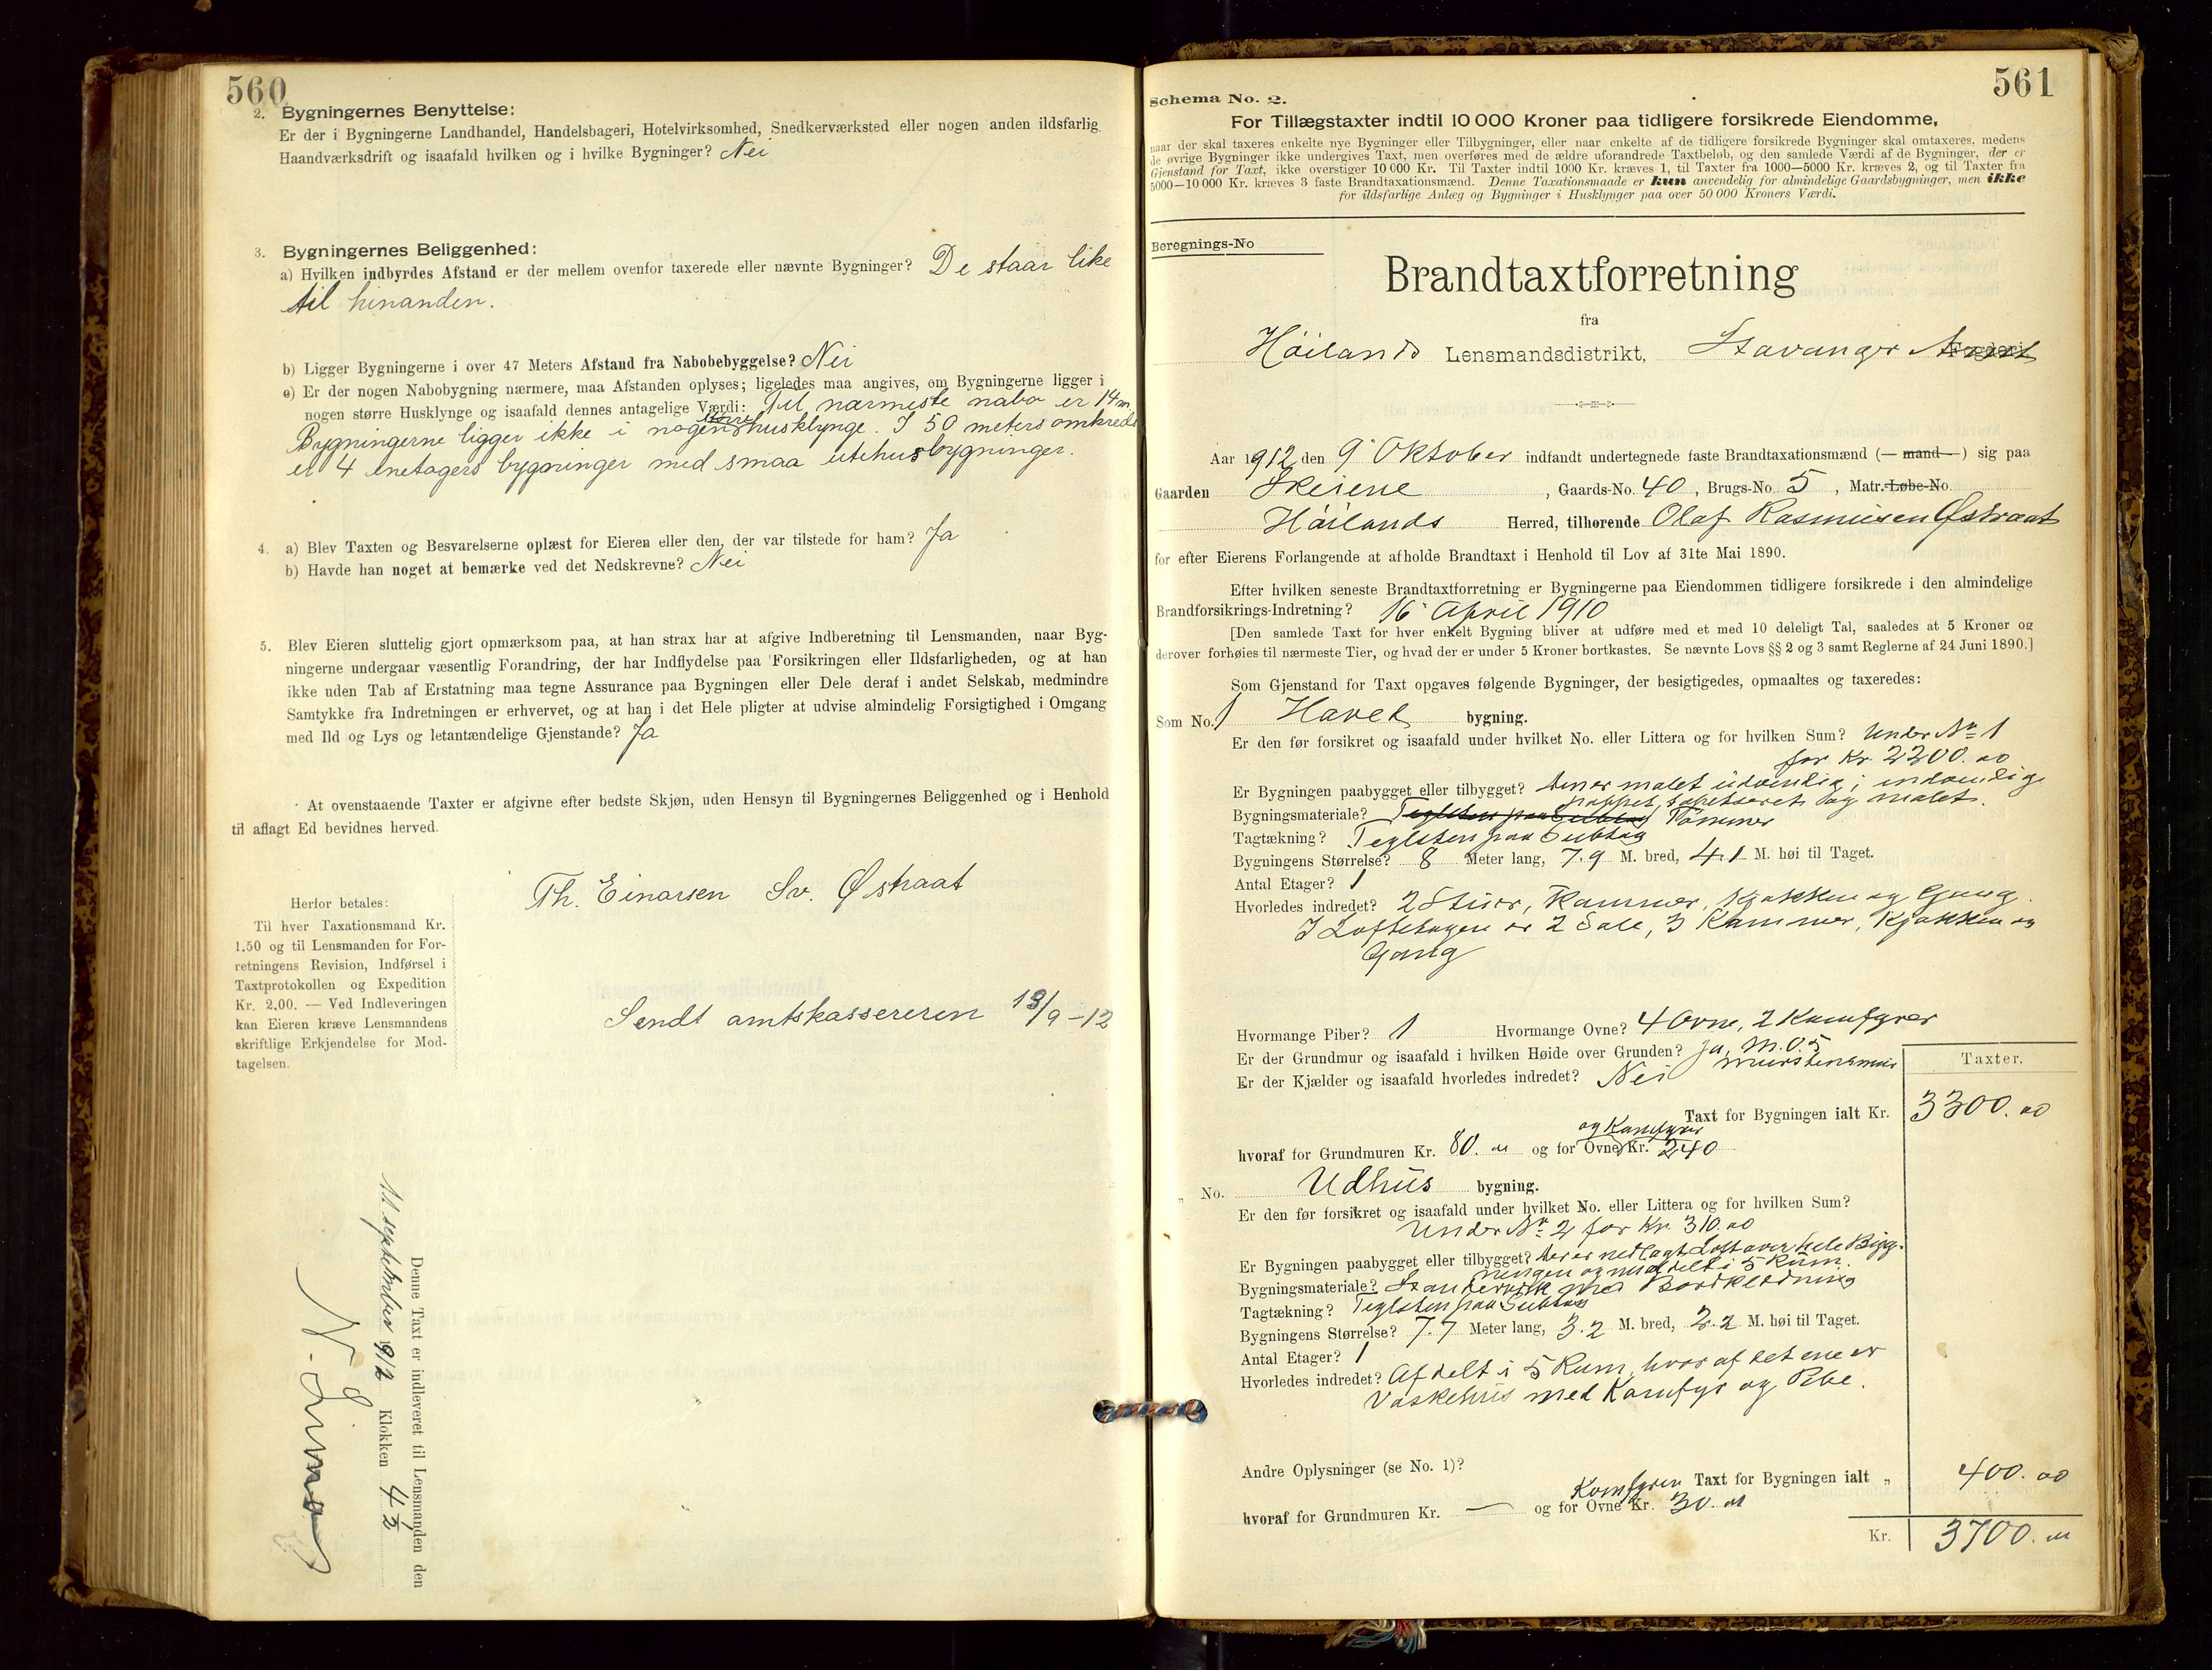 560
2. Bygningernes Benyttelse:
Er der i Bygningerne Landhandel, Handelsbageri, Hotelvirksomhed, Snedkerværksted eller nogen anden ildsfarlig
Haandværksdrift og isaafald hvilken og i hvilke Bygninger? Nei
3. Bygningernes Beliggenhed:
a) Hvilken indbyrdes Afstand er der mellem ovenfor taxerede eller nævnte Bygninger? De staar like
til hinanden.
b) Ligger Bygningerne i over 47 Meters Afstand fra Nabobebyggelse? Nei
c) Er der nogen Nabobygning nærmere, maa Afstanden oplyses; ligeledes maa angives, om Bygningerne ligger i
nogen større Husklynge og isaafald dennes antagelige Værdi: Til nærmeste nabo er 14 m
Bygningerne ligger ikke i nogen større husklynge. I 50 meters omkreds
er 4 enetagers bygninger med smaa utehusbygninger.
4. a) Blev Taxten og Besvarelserne oplæst for Eieren eller den, der var tilstede for ham? Ja
b) Havde han noget at bemærke ved det Nedskrevne? Nei
5. Blev Eieren sluttelig gjort opmærksom paa, at han strax har at afgive Indberetning til Lensmanden, naar Byg-
ningerne undergaar væsentlig Forandring, der har Indflydelse paa Forsikringen eller Ildsfarligheden, og at han
ikke uden Tab af Erstatning maa tegne Assurance paa Bygningen eller Dele deraf i andet Selskab, medmindre
Samtykke fra Indretningen er erhvervet, og at han i det Hele pligter at udvise almindelig Forsigtighed i Omgang
med Ild og Lys og letantændelige Gjenstande? Ja
At ovenstaaende Taxter er afgivne efter bedste Skjøn, uden Hensyn til Bygningernes Beliggenhed og i Henhold
til aflagt Ed bevidnes herved.
Th. Einarsen Sv. Østraat
Herfor betales:
Til hver Taxationsmand Kr.
1.50 og til Lensmanden for For-
retningens Revision, Indførsel i
Taxtprotokollen og Expedition
Kr. 2.00. — Ved Indleveringen
kan Eieren kræve Lensmandens
skriftlige Erkjendelse for Mod-
tagelsen.
Sendt amtskassereren 13/9-12
Denne Taxt er indleveret til Lensmanden den
11 september 1912 Klokken 4 1/2
561
Schema No. 2.
For Tillægstaxter indtil 10 000 Kroner paa tidligere forsikrede Eiendomme,
naar der skal taxeres enkelte nye Bygninger eller Tilbygninger, eller naar enkelte af de tidligere forsikrede Bygninger skal omtaxeres, medens
de øvrige Bygninger ikke undergives Taxt, men overføres med de ældre uforandrede Taxtbeløb, og den samlede Værdi af de Bygninger, der er
Gjenstand for Taxt, ikke overstiger 10 000 Kr. Til Taxter indtil 1000 Kr. kræves 1, til Taxter fra 1000—5000 Kr. kræves 2, og til Taxter fra
5000—10 000 Kr. kræves 3 faste Brandtaxationsmænd. Denne Taxationsmaade er kun anvendelig for almindelige Gaardsbygninger, men ikke
for ildsfarlige Anlæg og Bygninger i Husklynger paa over 50 000 Kroners Værdi.
Beregnings-No
Brandtaxtforretning
fra
Høilands Lensmandsdistrikt, Stavanger Amt Fogderi
Aar 1912 den 9 Oktober indfandt undertegnede faste Brandtaxationsmænd (— mand —) sig paa
Gaarden Skeiene, Gaards-No. 40, Brugs-No. 5, Matr.-Løbe-No.
Høilands Herred, tilhørende Olaf Rasmusen Østraat
for efter Eierens Forlangende at afholde Brandtaxt i Henhold til Lov af 31te Mai 1890.
Efter hvilken seneste Brandtaxtforretning er Bygningerne paa Eiendommen tidligere forsikrede i den almindelige
Brandforsikrings-Indretning? 16 April 1910
[Den samlede Taxt for hver enkelt Bygning bliver at udføre med et med 10 deleligt Tal, saaledes at 5 Kroner og
derover forhøies til nærmeste Tier, og hvad der er under 5 Kroner bortkastes. Se nævnte Lovs §§ 2 og 3 samt Reglerne af 24 Juni 1890.]
Som Gjenstand for Taxt opgaves følgende Bygninger, der besigtigedes, opmaaltes og taxeredes:
Som No. 1 Hoved bygning.
Er den før forsikret og isaafald under hvilket No. eller Littera og for hvilken Sum? Under No 1
for Kr. 2200.00
Er Bygningen paabygget eller tilbygget? Den er malet udvendig; indvendig
pappet, tapetseret og malet.
Bygningsmateriale? Teglsten paa Subtag Tømmer
Tagtækning? Teglsten paa Subtag
Bygningens Størrelse? 8 Meter lang, 7.9 M. bred, 4.1 M. høi til Taget.
Antal Etager? 1
Hvorledes indredet? 2 Stuer, Kammer, Kjøkken og Gang.
I Loftetagen er 2 Sale, 3 Kammer, Kjøkken og
Gang
Hvormange Piber? 1 Hvormange Ovne? 4 Ovne, 2 Komfyrer
Er der Grundmur og isaafald i hvilken Høide over Grunden? Ja, M. 0.5
murstensmur
Er der Kjælder og isaafald hvorledes indredet? Nei
Taxter.
Taxt for Bygningen ialt Kr. 3300.00
og Komfyrer
hvoraf for Grundmuren Kr. 80.00 og for Ovne Kr. 240
" No. Udhus bygning.
Er den før forsikret og isaafald under hvilket No. eller Littera og for hvilken Sum?
Under No 2 for Kr. 310.00
Er Bygningen paabygget eller tilbygget? Der er nedlagt Loft over hele Byg-
ningen og inddelt i 5 Rum.
Bygningsmateriale? Standerværk med Bordklædning
Tagtækning? Teglsten paa Subtag
Bygningens Størrelse? 7.7 Meter lang, 3.2 M. bred, 2.2 M. høi til Taget.
Antal Etager? 1
Hvorledes indredet? Afdelt i 5 Rum, hvoraf det ene er
Vaskehus med Komfyr og Pibe.
Andre Oplysninger (se No. 1)?
Komfyren Taxt for Bygningen ialt " 400.00
hvoraf for Grundmuren Kr. — og for Ovne Kr. 30.00
Kr. 3700.00